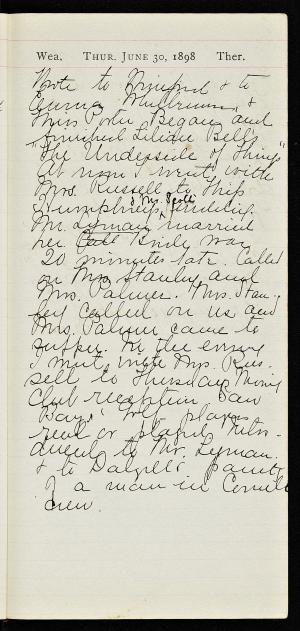 Wea. THUR. JUNE 30, 1898 Ther.
Wrote to Winifred & to
Emma &
Miss Porter. Began and
finished Lilian Bell's
"The Underside of Things"
At noon I went with
Mrs. Russell to Miss
& Mrs.
Humphrey's wedding.
Mr. Lyman married
her Emily was
20 minutes late. Called
on Mrs. Stanley and
Mrs. Palmer. Mrs. Stan-
ley called on us and
Mrs. Palmer came to
supper. In the evening
I went with Mrs. Rus-
sell to Thursday Morning
Club reception. Saw
Bang's played
read or played. Intro-
duced to Mr. Lyman.
& to
of a man in Cornell
crew.